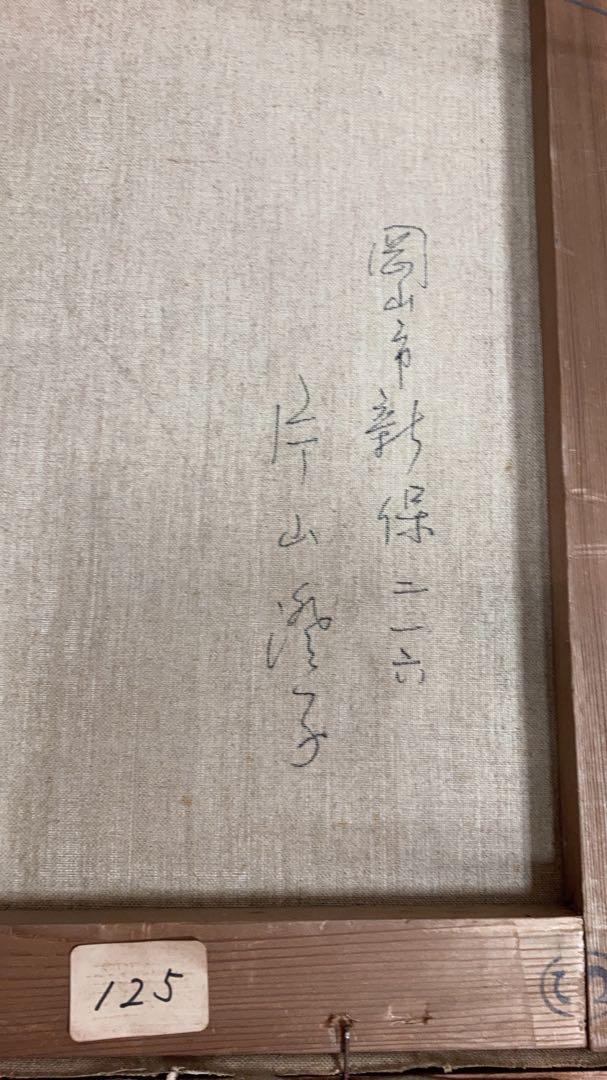 岡山市新保二一六
片山澄子
125